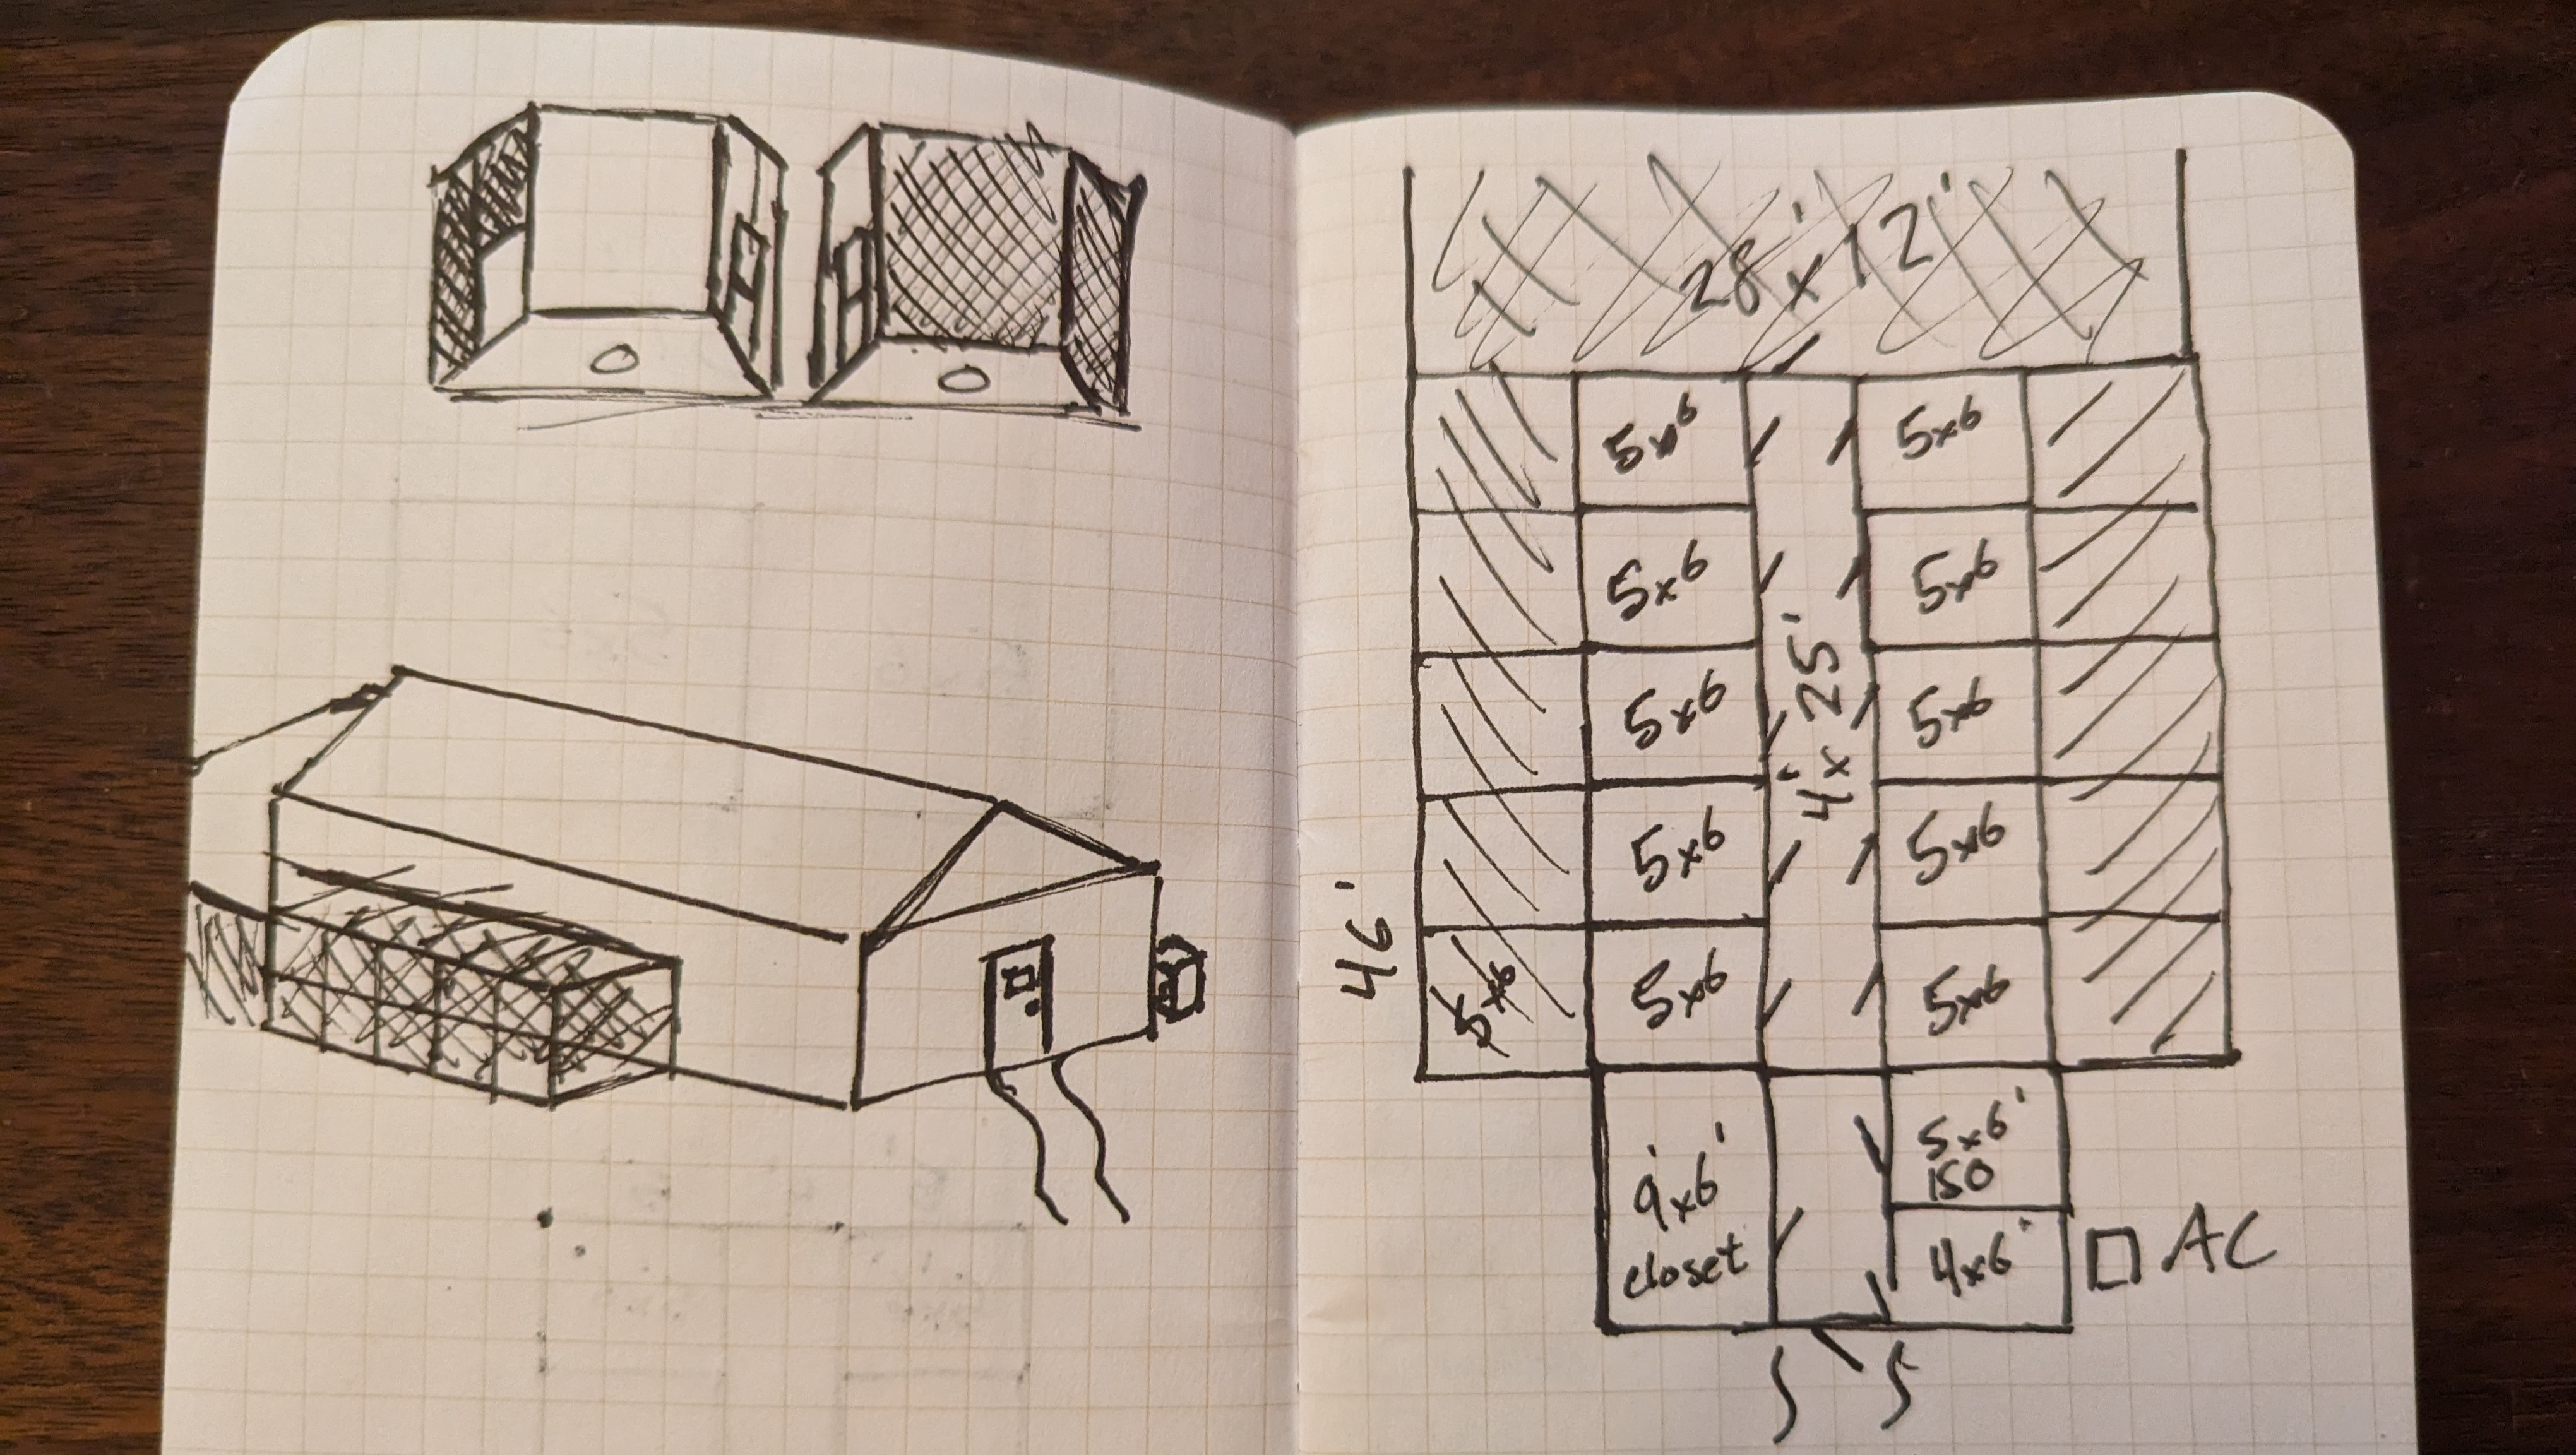 28'x12'
5x6
5x6
5x6
5x6
5x6
5x6
4'x25'
5x6
5x6
46'
5x6
5x6
5x6
9'x6'
closet
5x6'
ISO
4x6'
AC